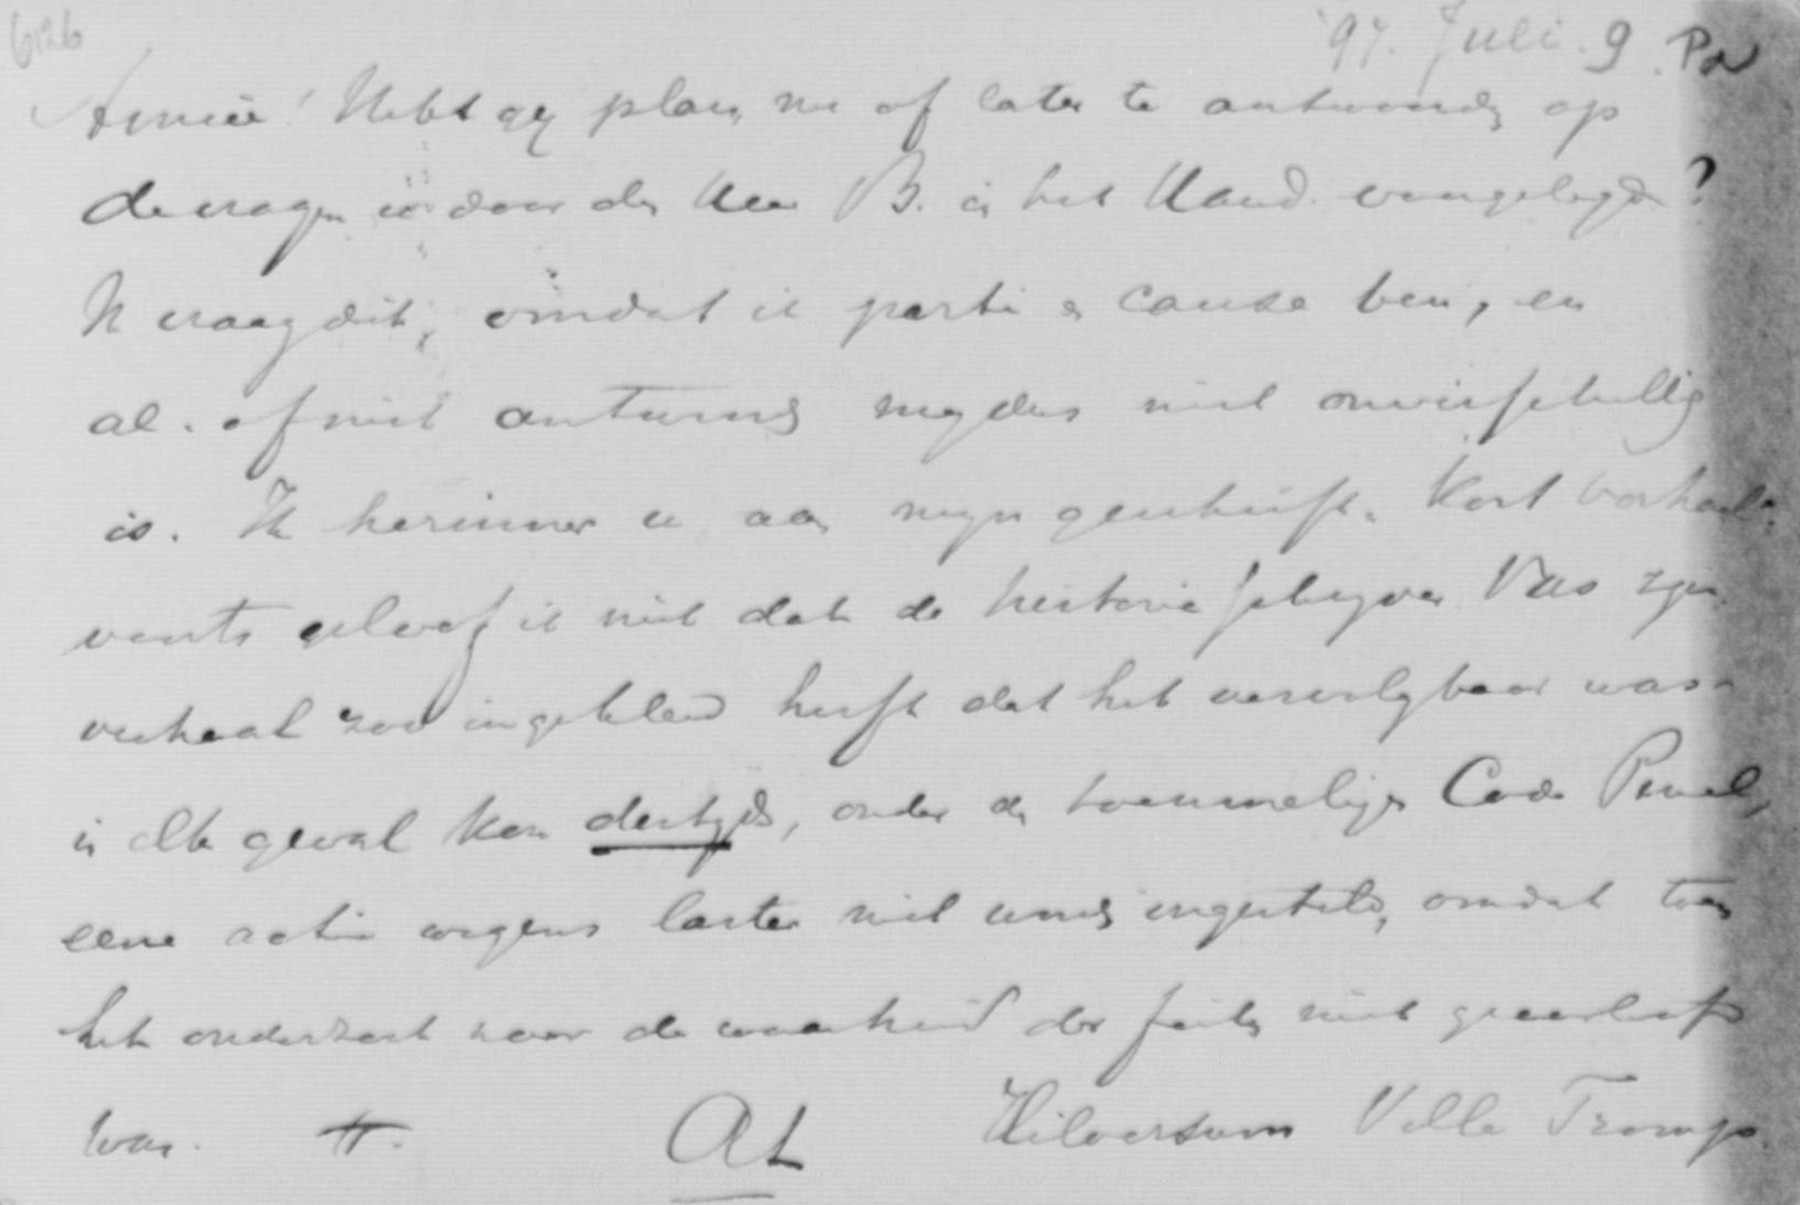 '97. Juli. 9.
Amice! Hebt gij plan, nu of later te antwoorden op
de vragen door den Heer B. in het Hand. voorgelegd?
Ik vraag dit, omdat ik partie en cause ben, en
al of niet antwoord mij dus niet onverschillig
is. Ik herinner u aan mijn geschrift. Kort
geloof ik niet dat de historieschrijver Vas zijn
verhaal zoo ingekleed heeft dat het vervolgbaar was.
in elk geval kon destijds, onder den toenmaligen Code Penal,
eene actie wegens laster niet ingesteld, omdat toen
het onderzoek naar de waarheid der feiten niet geoorloofd
was. tt.
AL Hilversum Villa Tromp.